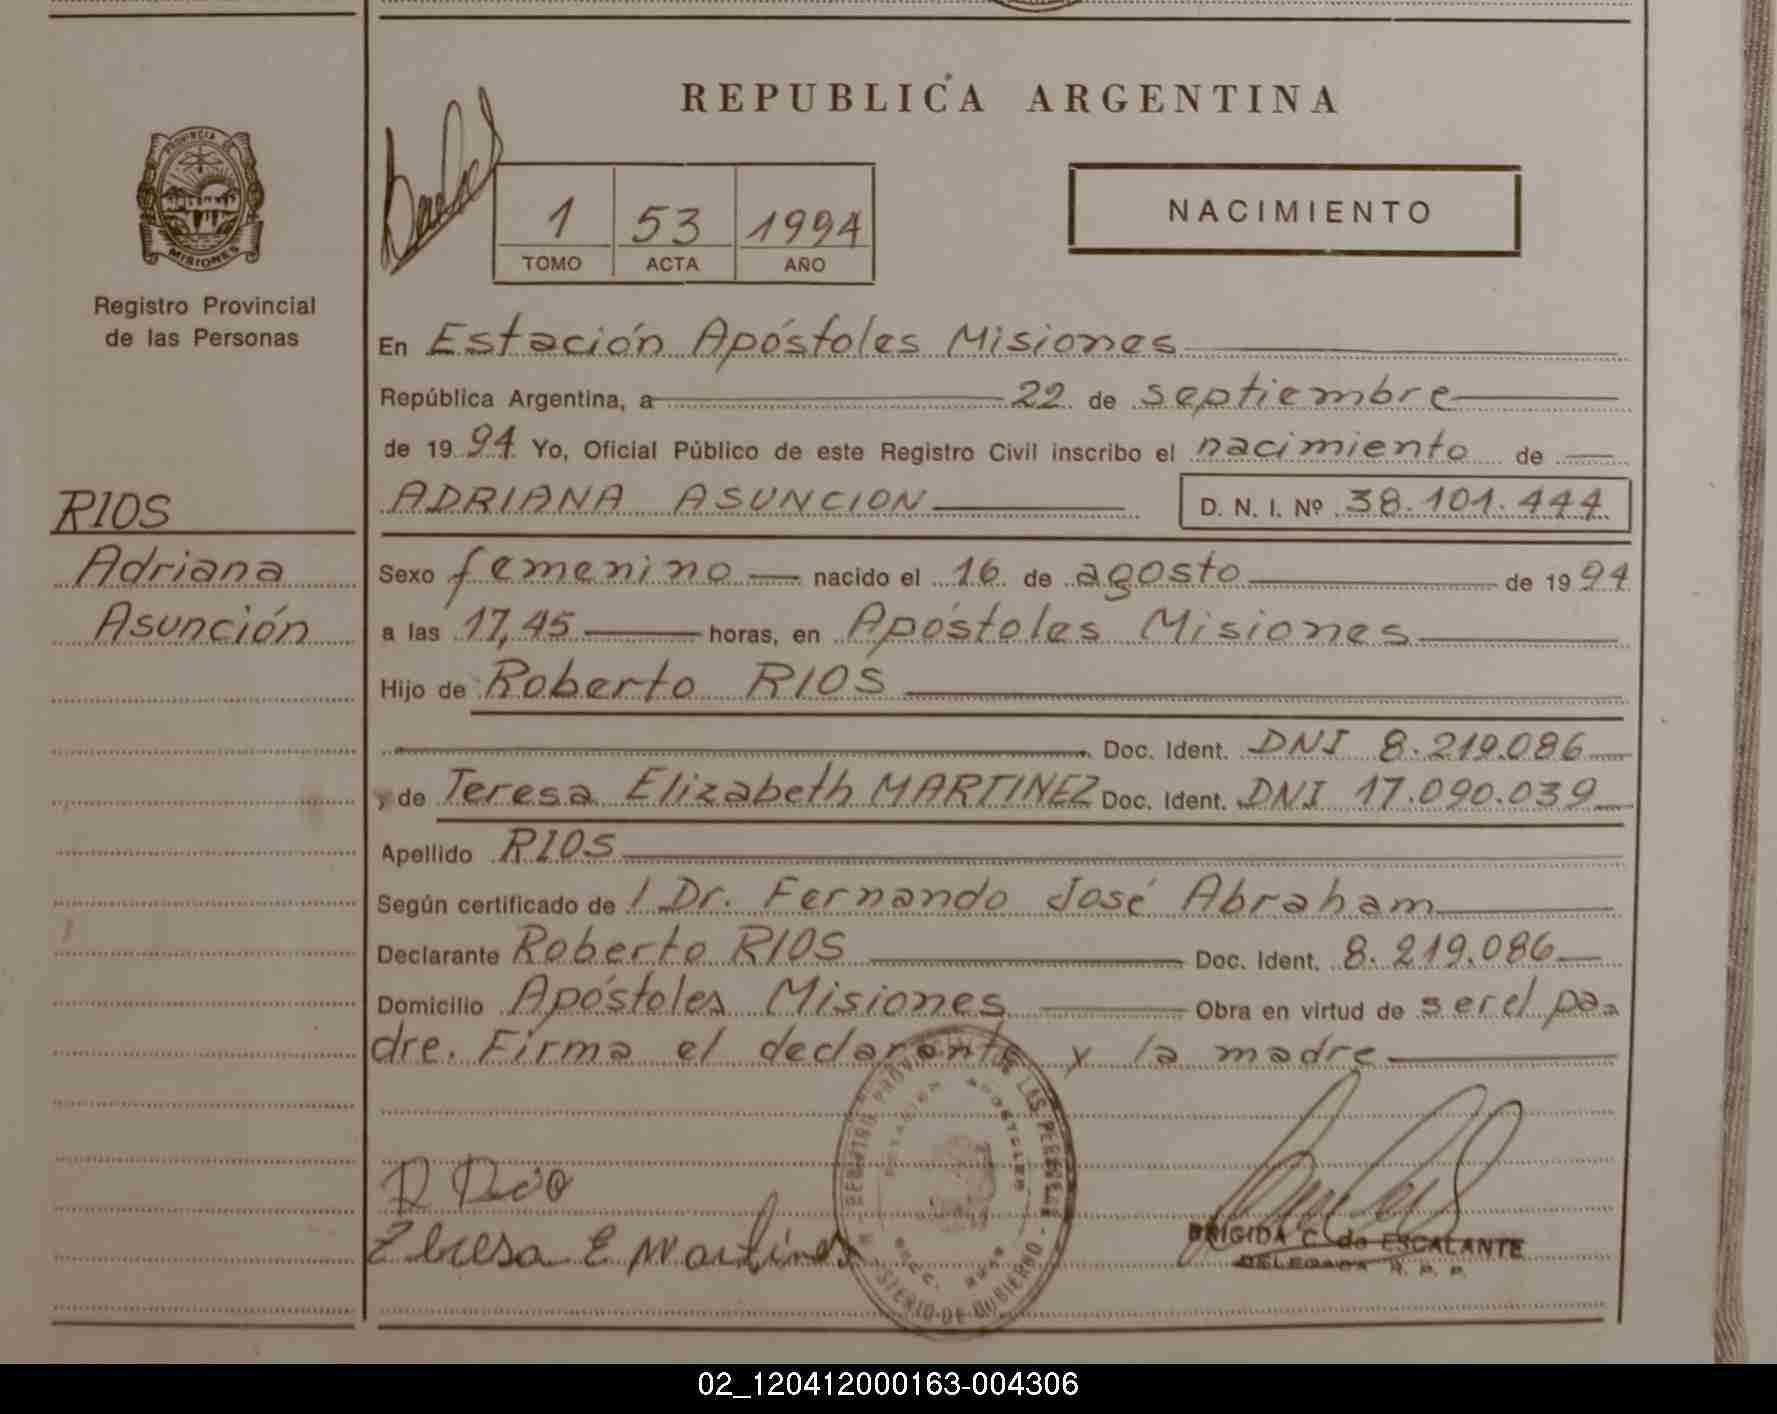 REPUBLICA ARGENTINA
PROVINCIA DE
MISIONES
Registro Provincial
de las Personas
1 53 1994
TOMO ACTA AÑO
NACIMIENTO
En Estación Apóstoles Misiones
República Argentina, a 22 de septiembre
de 1994 Yo, Oficial Público de este Registro Civil inscribo el nacimiento de
ADRIANA ASUNCION D. N. I. Nº 38.101.444
RIOS
Adriana
Asunción
Sexo femenino nacido el 16 de agosto de 1994
a las 17,45 horas, en Apóstoles Misiones
Hijo de Roberto RIOS
Doc. Ident. DNI 8.219.086
y de Teresa Elizabeth MARTINEZ Doc. Ident. DNI 17.090.039
Apellido RIOS
Según certificado de / Dr. Fernando José Abraham
Declarante Roberto RIOS Doc. Ident. 8.219.086
Domicilio Apóstoles Misiones Obra en virtud de ser el pa-
dre. Firma el declarante y la madre
R Rios
Teresa E Martines
REGISTRO PROVINCIAL DE LAS PERSONAS
ESTACION APOSTOLES
MINISTERIO DE GOBIERNO
BRIGIDA C. de ESCALANTE
DELEGADA R. P. P.
02_120412000163-004306